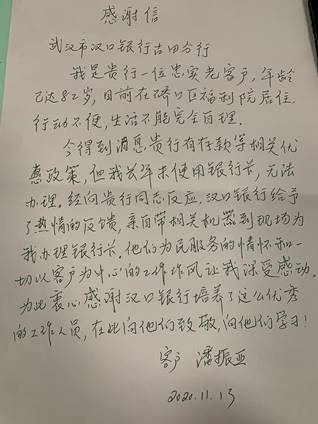 感谢信
武汉市汉口银行古田分行
我是贵行一位忠实老客户,年龄
已达82岁,目前在硚口区福利院居住.
行动不便,生活不能完全自理.
今得到消息,贵行有存款等相关优
惠政策,但我长年未使用银行卡,无法
办理.经向贵行同志反应,汉口银行给予
了热情的反馈,亲自带相关机器到现场为
我办理银行卡.他们为民服务的情怀和一
切以客户为中心的工作作风让我深受感动.
为此衷心感谢汉口银行培养了这么优秀
的工作人员,在此向他们致敬,向他们学习!
客户 潘振亚
2020.11.13